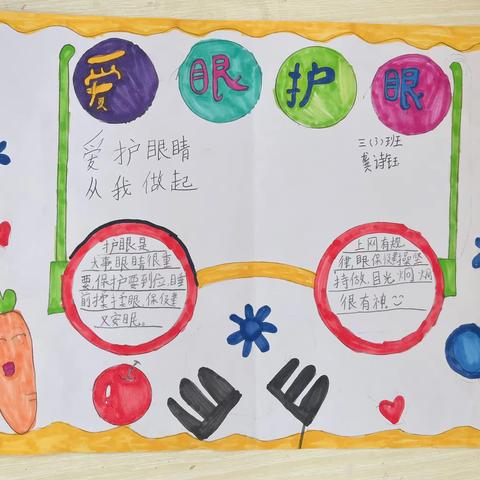 爱眼护眼
爱护眼睛
从我做起
三(3)班
龚诗钰
护眼是
大事眼睛很重
要,保护要到位,睡
前揉揉眼,保健
又安眠。
上网有规
律,眼保健操坚
持做,目光炯炯
很有神。